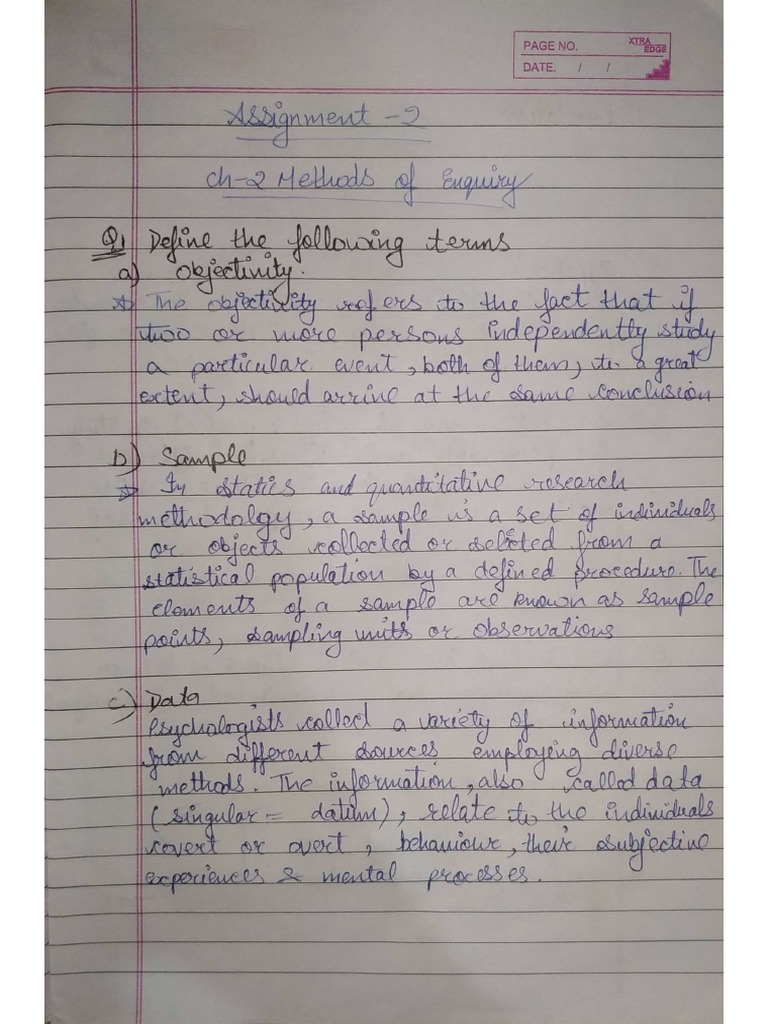 PAGE NO.
XTRA EDGE
DATE. / /
Assignment - 2
Ch-2 Methods of Enquiry
Q1 Define the following terms
a) Objectivity.
The objectivity refers to the fact that if
two or more persons independently study
a particular event, both of them, to a great
extent, should arrive at the same conclusion
b) Sample
In statics and quantitative research
methodolgy, a sample is a set of individuals
or objects collected or selected from a
statistical population by a defined procedure. The
elements of a sample are known as sample
points, sampling units or observations
c) Data
Psychologists collect a variety of information
from different sources employing diverse
methods. The information, also called data
(singular = datum), relate to the individuals
covert or overt, behaviour, their subjective
experiences & mental processes.